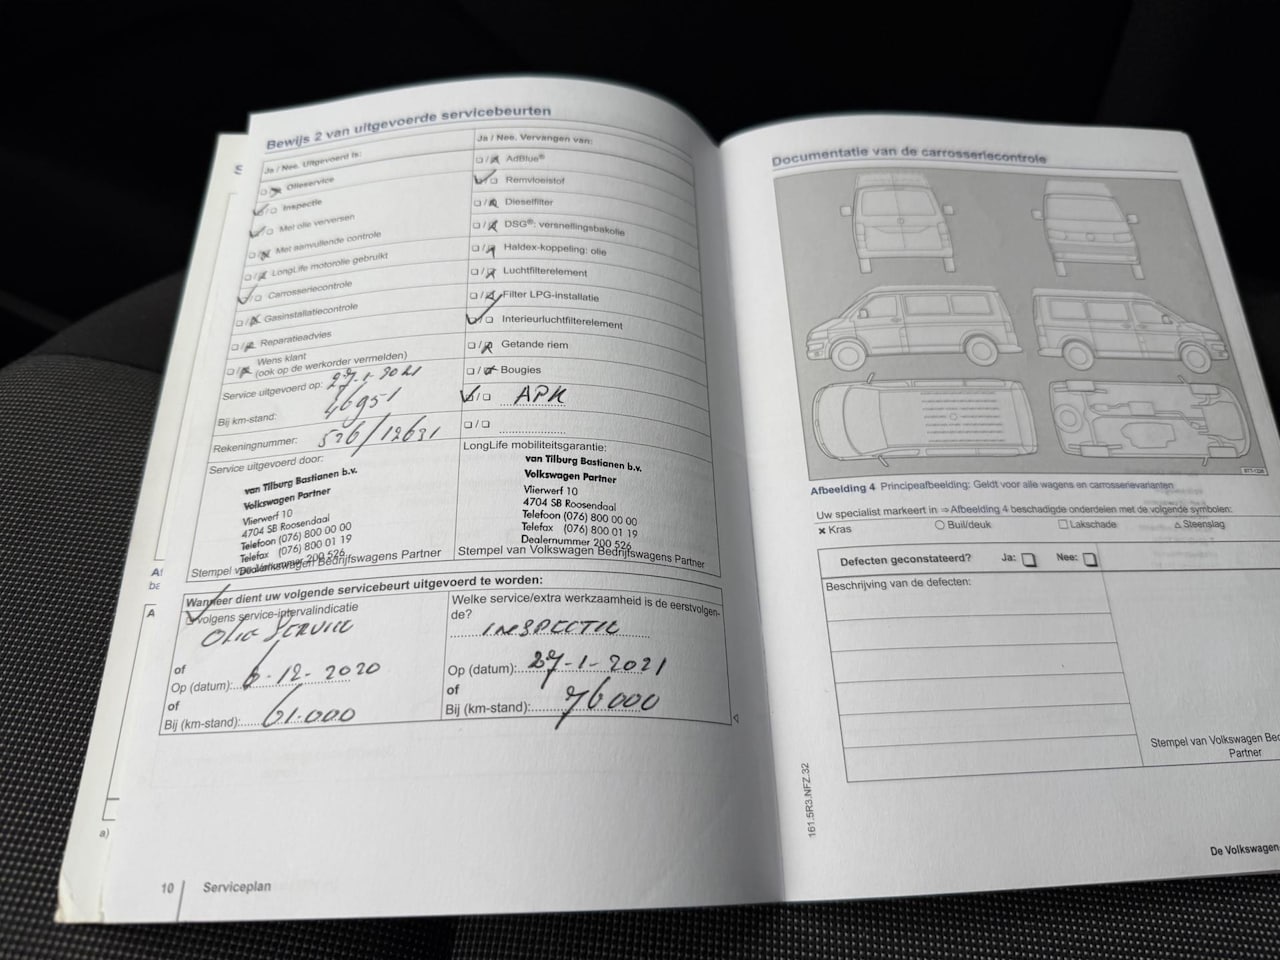 Bewijs 2 van uitgevoerde servicebeurten
Ja / Nee. Uitgevoerd is:
Olieservice
Inspectie
Met olie verversen
Met aanvullende controle
LongLife motorolie gebruikt
Carrosseriecontrole
Gasinstallatiecontrole
Reparatieadvies
Wens klant
(ook op de werkorder vermelden)
Service uitgevoerd op: 27-1-2021
Bij km-stand: 46951
Rekeningnummer: 526/12631
Service uitgevoerd door:
van Tilburg Bastianen b.v.
Volkswagen Partner
Vlierwerf 10
4704 SB Roosendaal
Telefoon (076) 800 00 00
Telefax (076) 800 01 19
Dealernummer 200 526
Stempel van Volkswagen Bedrijfswagens Partner
Ja / Nee. Vervangen van:
AdBlue®
Remvloeistof
Dieselfilter
DSG®: versnellingsbakolie
Haldex-koppeling: olie
Luchtfilterelement
Filter LPG-installatie
Interieurluchtfilterelement
Getande riem
Bougies
APK
LongLife mobiliteitsgarantie:
van Tilburg Bastianen b.v.
Volkswagen Partner
Vlierwerf 10
4704 SB Roosendaal
Telefoon (076) 800 00 00
Telefax (076) 800 01 19
Dealernummer 200 526
Stempel van Volkswagen Bedrijfswagens Partner
Wanneer dient uw volgende servicebeurt uitgevoerd te worden:
volgens service-intervalindicatie
OLIE SERVICE
of
Op (datum): 6-12-2020
of
Bij (km-stand): 61.000
Welke service/extra werkzaamheid is de eerstvolgen-
de?
INSPECTIE
Op (datum): 27-1-2021
of
Bij (km-stand): 76000
10 Serviceplan
A
a)
Documentatie van de carrosseriecontrole
Afbeelding 4 Principeafbeelding: Geldt voor alle wagens en carrosserievarianten
Uw specialist markeert in ⇒ Afbeelding 4 beschadigde onderdelen met de volgende symbolen:
× Kras ○ Buil/deuk □ Lakschade △ Steenslag
Defecten geconstateerd? Ja: Nee:
Beschrijving van de defecten:
Stempel van Volkswagen Bed
Partner
161.5R3.NFZ.32
De Volkswagen